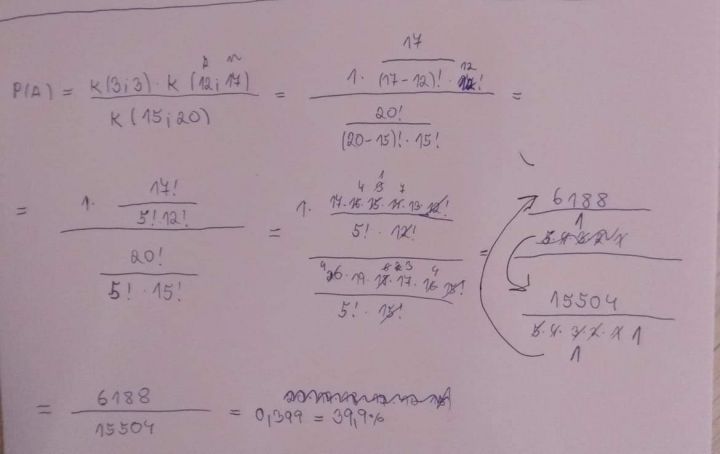 p n
17
12
P(A) = K(3;3) · K(12;17) / K(15;20) = 1 · 17 / (17-12)! · 12! / 20! / (20-15)! · 15! =
= 1 · 17! / 5! 12! / 20! / 5! · 15! = 1 · 17 · 16 · 15 · 14 · 13 · 12! / 5! · 12! / 20 · 19 · 18 · 17 · 16 · 15! / 5! · 15! = 6188 / 1 / 15504 / 5 · 4 · 3 · 2 · 1 1
1
= 6188 / 15504 = 0,399 = 39,9%